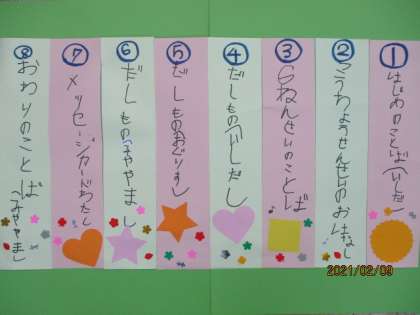 ①はじめのことば(いしだ)
②こうちょうせんせいのおはなし
③6ねんせいのことば
④だしもの(いしだ)
⑤だしもの(おぐりす)
⑥だしもの(みややま)
⑦メッセージカードわたし
⑧おわりのことば(みややま)
2021/02/09